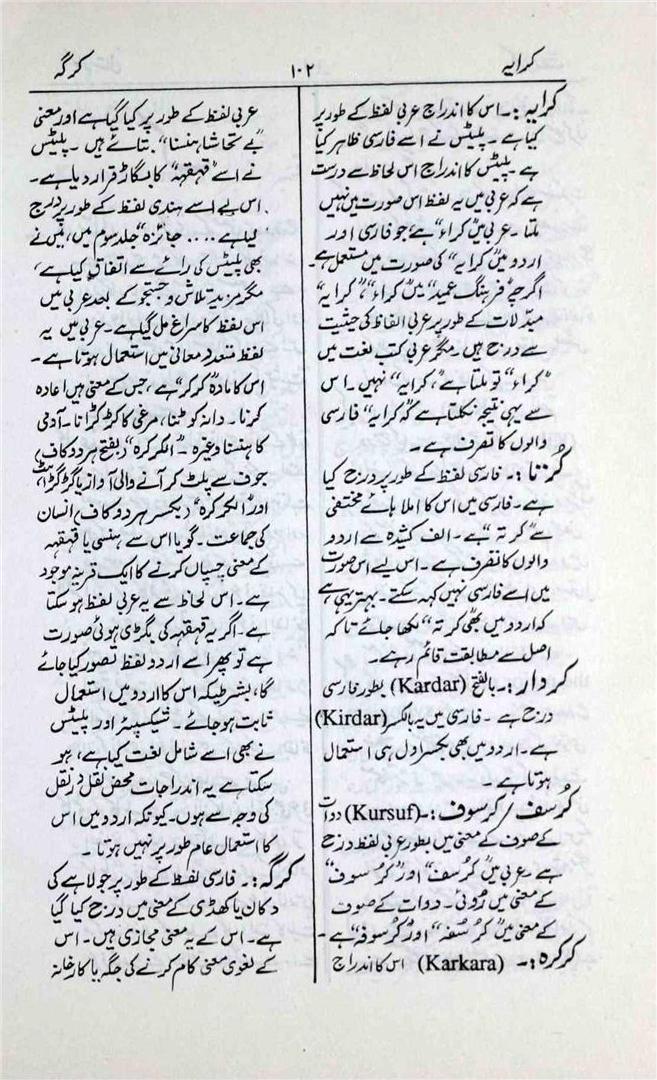 کرایہ ۱۰۲ کرگہ
کرایہ :۔ اس کا اندراج عربی لفظ کے طور پر
کیا ہے۔ پلیٹس نے اسے فارسی ظاہر کیا
ہے۔ پلیٹس کا اندراج اس لحاظ سے درست
ہے کہ عربی میں یہ لفظ اس صورت میں نہیں
ملتا۔ عربی میں "کراء" ہے جو فارسی اور
اردو میں "کرایہ" کی صورت میں مستعمل ہے۔
اگرچہ "فرہنگ عمید" میں "کراء"، "کرایہ"
مبدلات کے طور پر عربی الفاظ کی حیثیت
سے درج ہیں۔ مگر عربی کتب لغت میں
"کراء" تو ملتا ہے، "کرایہ" نہیں۔ اس
سے یہی نتیجہ نکلتا ہے کہ "کرایہ" فارسی
والوں کا تصرف ہے۔
کُرتا :۔ فارسی لفظ کے طور پر درج کیا
ہے۔ فارسی میں اس کا املا ہائے مختفی
سے "کرتہ" ہے۔ الف کشیدہ سے اردو
والوں کا تصرف ہے۔ اس لیے اس صورت
میں اسے فارسی نہیں کہہ سکتے۔ بہتر یہی ہے
کہ اردو میں بھی "کرتہ" لکھا جائے تاکہ
اصل سے مطابقت قائم رہے۔
کردار :۔ بالفتح (Kardar) بطور فارسی
درج ہے۔ فارسی میں یہ بالکسر (Kirdar)
ہے۔ اردو میں بھی بکسر اول ہی استعمال
ہوتا ہے۔
کُرسُف / کرسوف :۔ (Kursuf) دوات
کے صوف کے معنی میں بطور عربی لفظ درج
ہے۔ عربی میں "کُرسُف" اور "کُرسوف"
کے معنی ہیں رُوئی۔ دوات کے صوف
کے معنی میں "کُرسُفہ" اور "کُرسوفہ" ہے۔
کرکرہ :۔ (Karkara) اس کا اندراج
عربی لفظ کے طور پر کیا گیا ہے اور معنی
"بے تحاشا ہنسنا" بتائے ہیں۔ پلیٹس
نے اسے "قہقہہ" کا بگاڑ قرار دیا ہے۔
اس لیے اسے ہندی لفظ کے طور پر درج
کیا ہے .... جائزہ "جلد سوم میں، میں نے
بھی پلیٹس کی رائے سے اتفاق کیا ہے،
مگر مزید تلاش و جستجو کے بعد عربی میں
اس لفظ کا سراغ مل گیا ہے۔ عربی میں یہ
لفظ متعدد معانی میں استعمال ہوتا ہے۔
اس کا مادہ "کرکر" ہے، جس کے معنی ہیں اعادہ
کرنا۔ دانہ کوٹنا، مرغی کا کڑکڑانا۔ آدمی
کا ہنسنا وغیرہ۔ "الکرکرہ" (بفتح ہر دو کاف)
جوف سے پلٹ کر آنے والی آواز یا گڑگڑاہٹ
اور "الکرکرہ" (بکسر ہر دو کاف) انسان
کی جماعت۔ گویا اس سے ہنسی یا قہقہہ
کے معنی چسپاں کرنے کا ایک قرینہ موجود
ہے۔ اس لحاظ سے یہ عربی لفظ ہو سکتا
ہے۔ اگر یہ قہقہہ کی بگڑی ہوئی صورت
ہے تو پھر اسے اردو لفظ تصور کیا جائے
گا، بشرطیکہ اس کا اردو میں استعمال
ثابت ہو جائے۔ شیکسپیئر اور پلیٹس
نے بھی اسے شامل لغت کیا ہے، ہو
سکتا ہے یہ اندراجات محض نقل در نقل
کی وجہ سے ہوں۔ کیونکہ اردو میں اس
کا استعمال عام طور پر نہیں ہوتا۔
کرگہ :۔ فارسی لفظ کے طور پر جولاہے کی
دکان یا کھڈی کے معنی میں درج کیا گیا
ہے۔ اس کے یہ معنی مجازی ہیں۔ اس
کے لغوی معنی کام کرنے کی جگہ یا کارخانہ